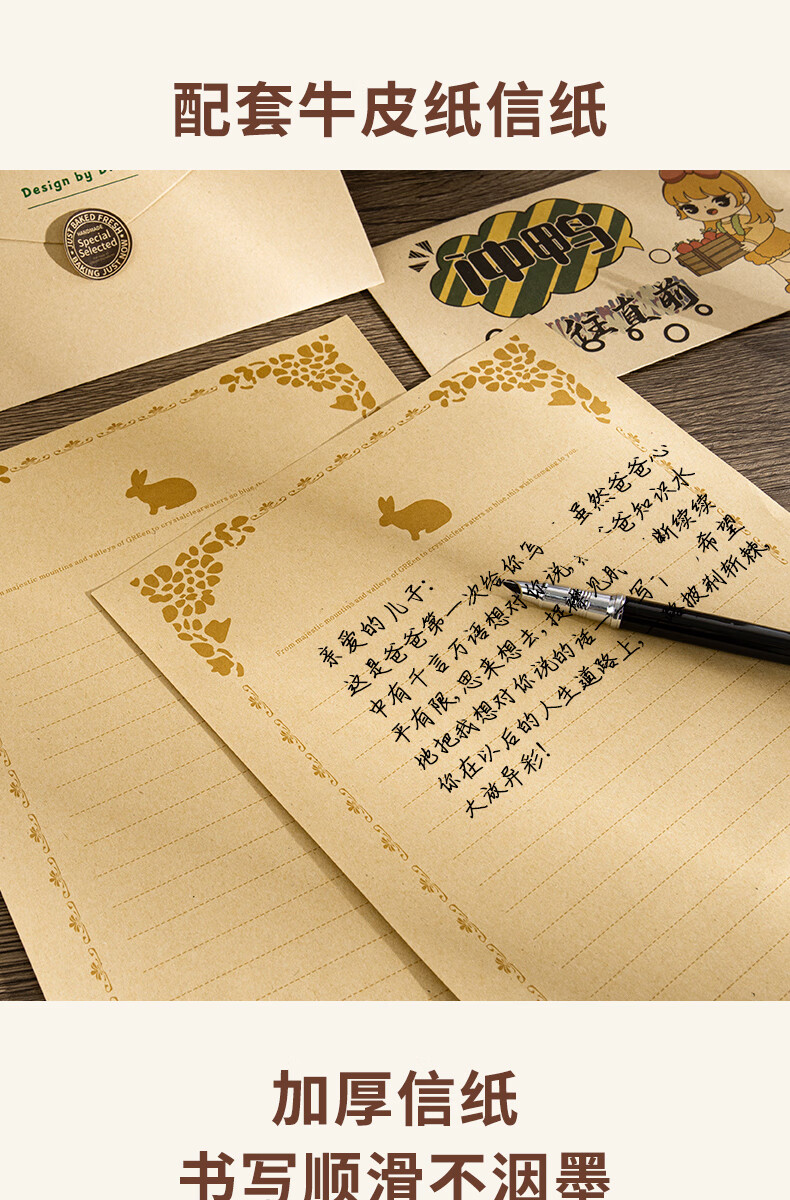 配套牛皮纸信纸
Design by
JUST BAKED FRESH
HANDMADE
Special
Selected
BAKING JUST NOW
往直前
majestic mountins and valleys of GREen to crystalclearwaters so blue,
From majestic mountins and valleys of GREen to crystalclearwaters so blue,this wish comging to you.
亲爱的儿子:
这是爸爸第一次给你写 虽然爸爸心
中有千言万语想对你说, 爸知识水
平有限,思来想去, 断续续
地把我想对你说的话一 写 希望
你在以后的人生道路上, 披荆斩棘,
大放异彩!
加厚信纸
书写顺滑不洇墨